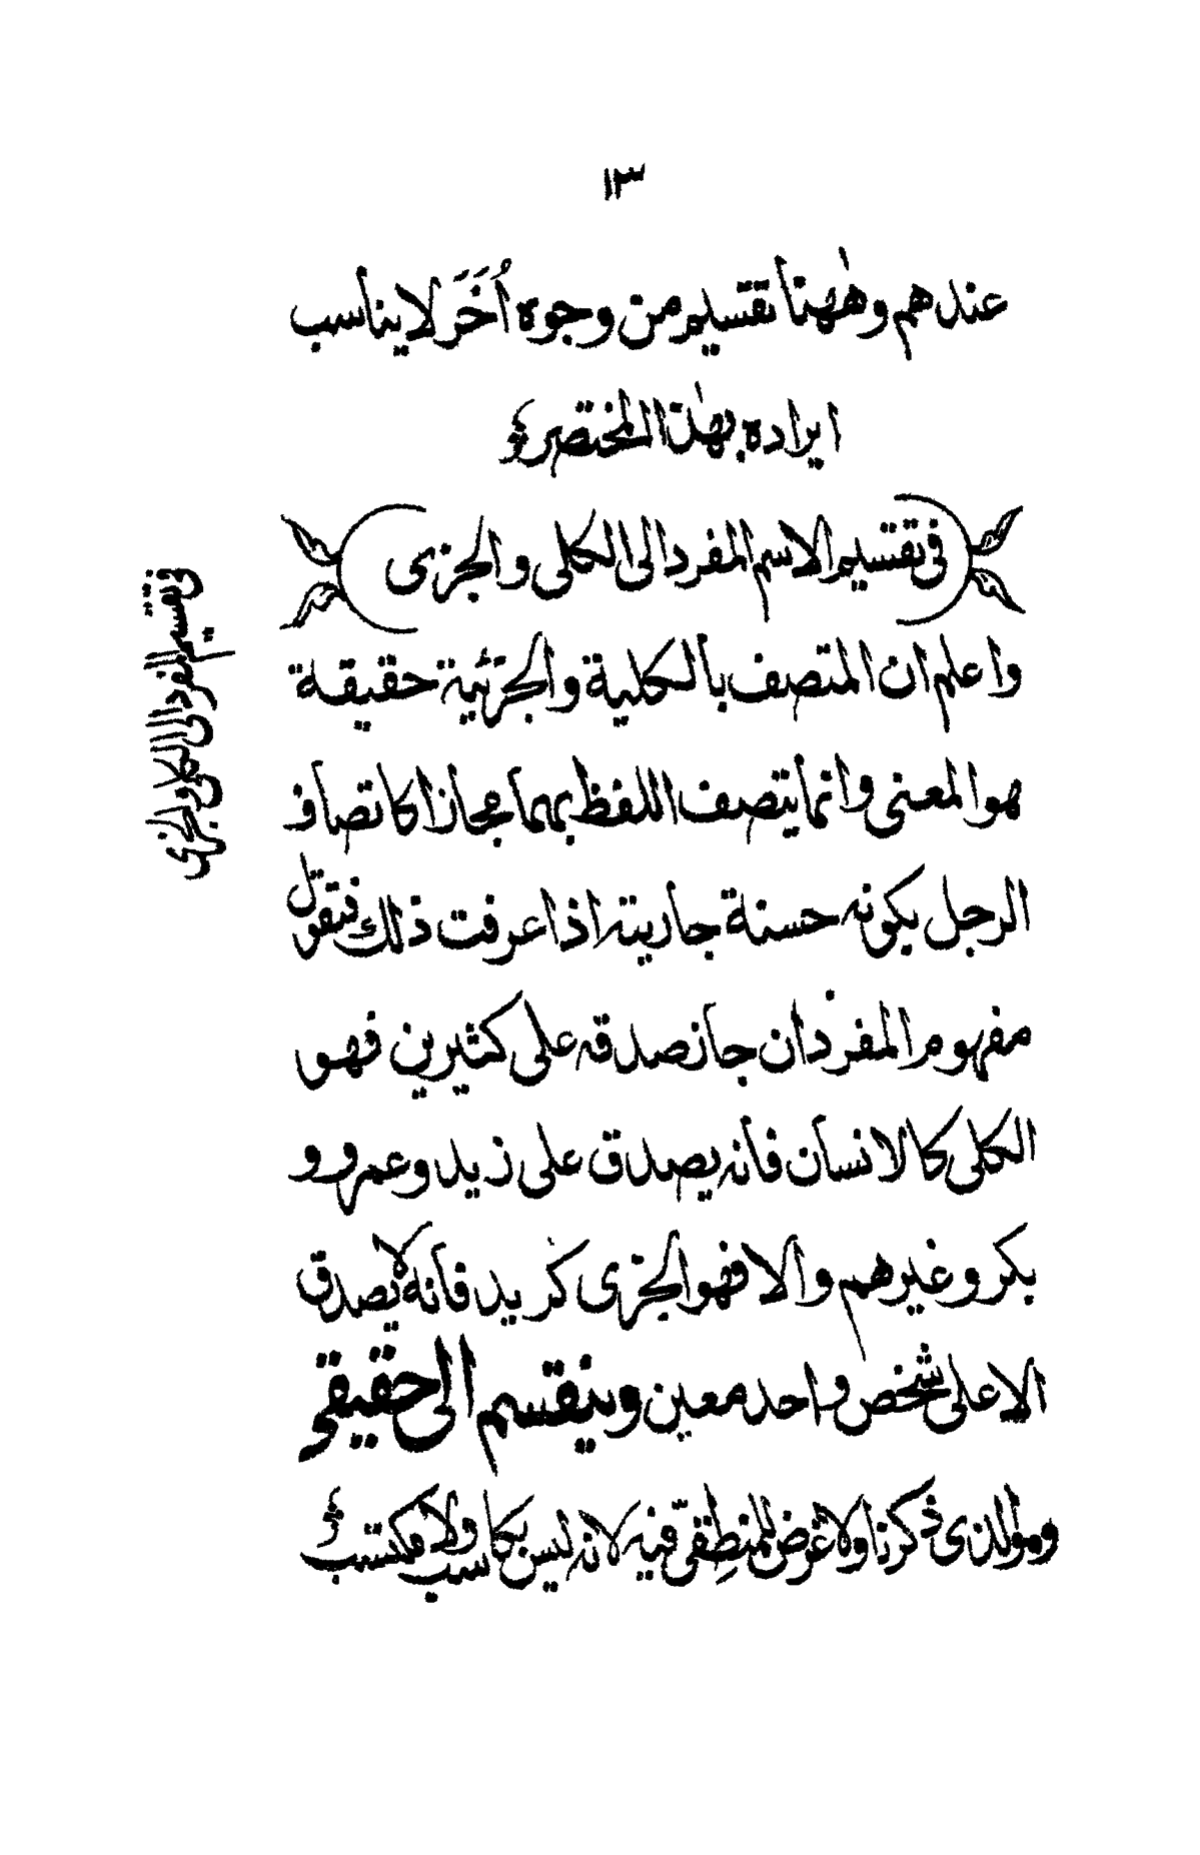 ١٣
عندهم وهٰهنا تقسيم من وجوه أُخَرَ لا يناسب
ايراده بهٰذا المختصر
فى تقسيم الاسم المفرد الى الكلى والجزى
واعلم ان المتصف بالكلية والجزئية حقيقة
هو المعنى وانما يتصف اللفظ بهما مجازا كاتصاف
الرجل بكونه حسنة جاريته اذا عرفت ذلك فنقول
مفهوم المفرد ان جاز صدقه على كثيرين فهو
الكلى كالانسان فانه يصدق على زيد وعمرو و
بكر وغيرهم والا فهو الجزى كزيد فانه لا يصدق
الا على شخص واحد معين وينقسم الى حقيقى
وهو الذى ذكرنا ولا غرض للمنطِقىّ فيه لانه ليس بكاسب ولا مكتسب
فى تقسيم المفرد الى الكلى والجزى